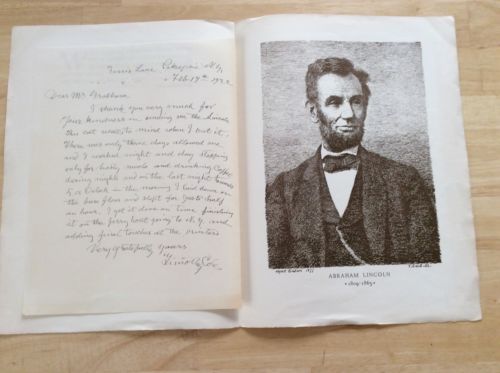 Ferris Lane,
Feb 19th 1922
Dear Mr.
I thank you very much for
your kindness in sending me the Lincoln
this cut went to mind when I
There was only three days allowed me
and I worked night and day stopping
only for hasty meals and drinking Coffee
during night and on the last night towards
5 o'clock in the morning I laid down on
the bare floor and slept for just half
an hour, I got it done on time finishing
it on the ferry boat going to N.Y. and
adding final touches at the printers
Very gratefully yours
Timothy Cole
ABRAHAM LINCOLN
•1809-1865•